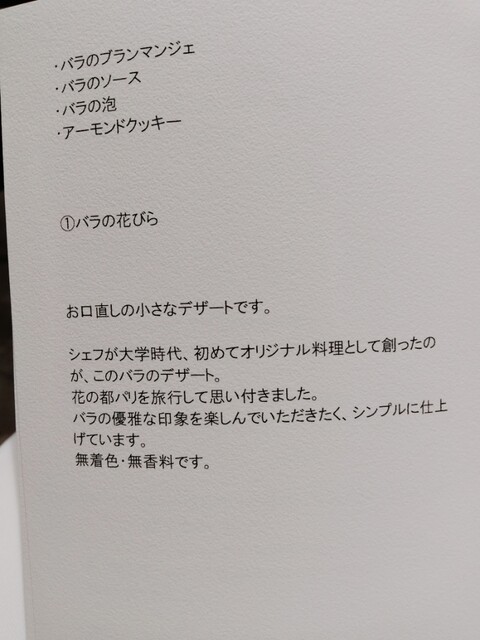 ・バラのブランマンジェ
・バラのソース
・バラの泡
・アーモンドクッキー
①バラの花びら
お口直しの小さなデザートです。
シェフが大学時代、初めてオリジナル料理として創ったの
が、このバラのデザート。
花の都パリを旅行して思い付きました。
バラの優雅な印象を楽しんでいただきたく、シンプルに仕上
げています。
無着色・無香料です。